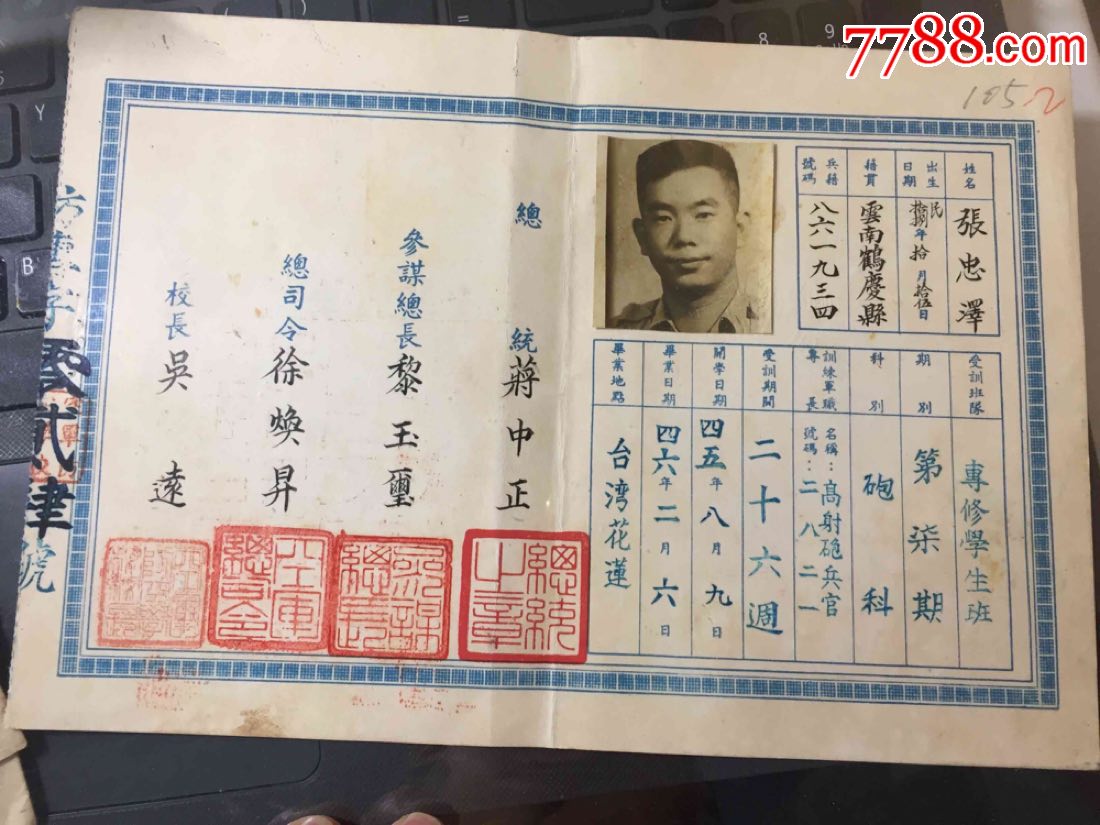 7788.com
105
姓名 張忠澤
出生日期 民拾捌年拾月拾伍日
籍貫 雲南鶴慶縣
兵籍號碼 八六一九三四
受訓班隊 專修學生班
期別 第柒期
科別 砲科
訓練軍職專長 名稱：高射砲兵官
號碼：二八二一
受訓期間 二十六週
開學日期 四五年八月九日
畢業日期 四六年二月六日
畢業地點 台湾花蓮
總統 蔣中正
參謀總長 黎玉璽
總司令 徐煥昇
校長 吳遠
總統之章
參謀總長
空軍總司令
號